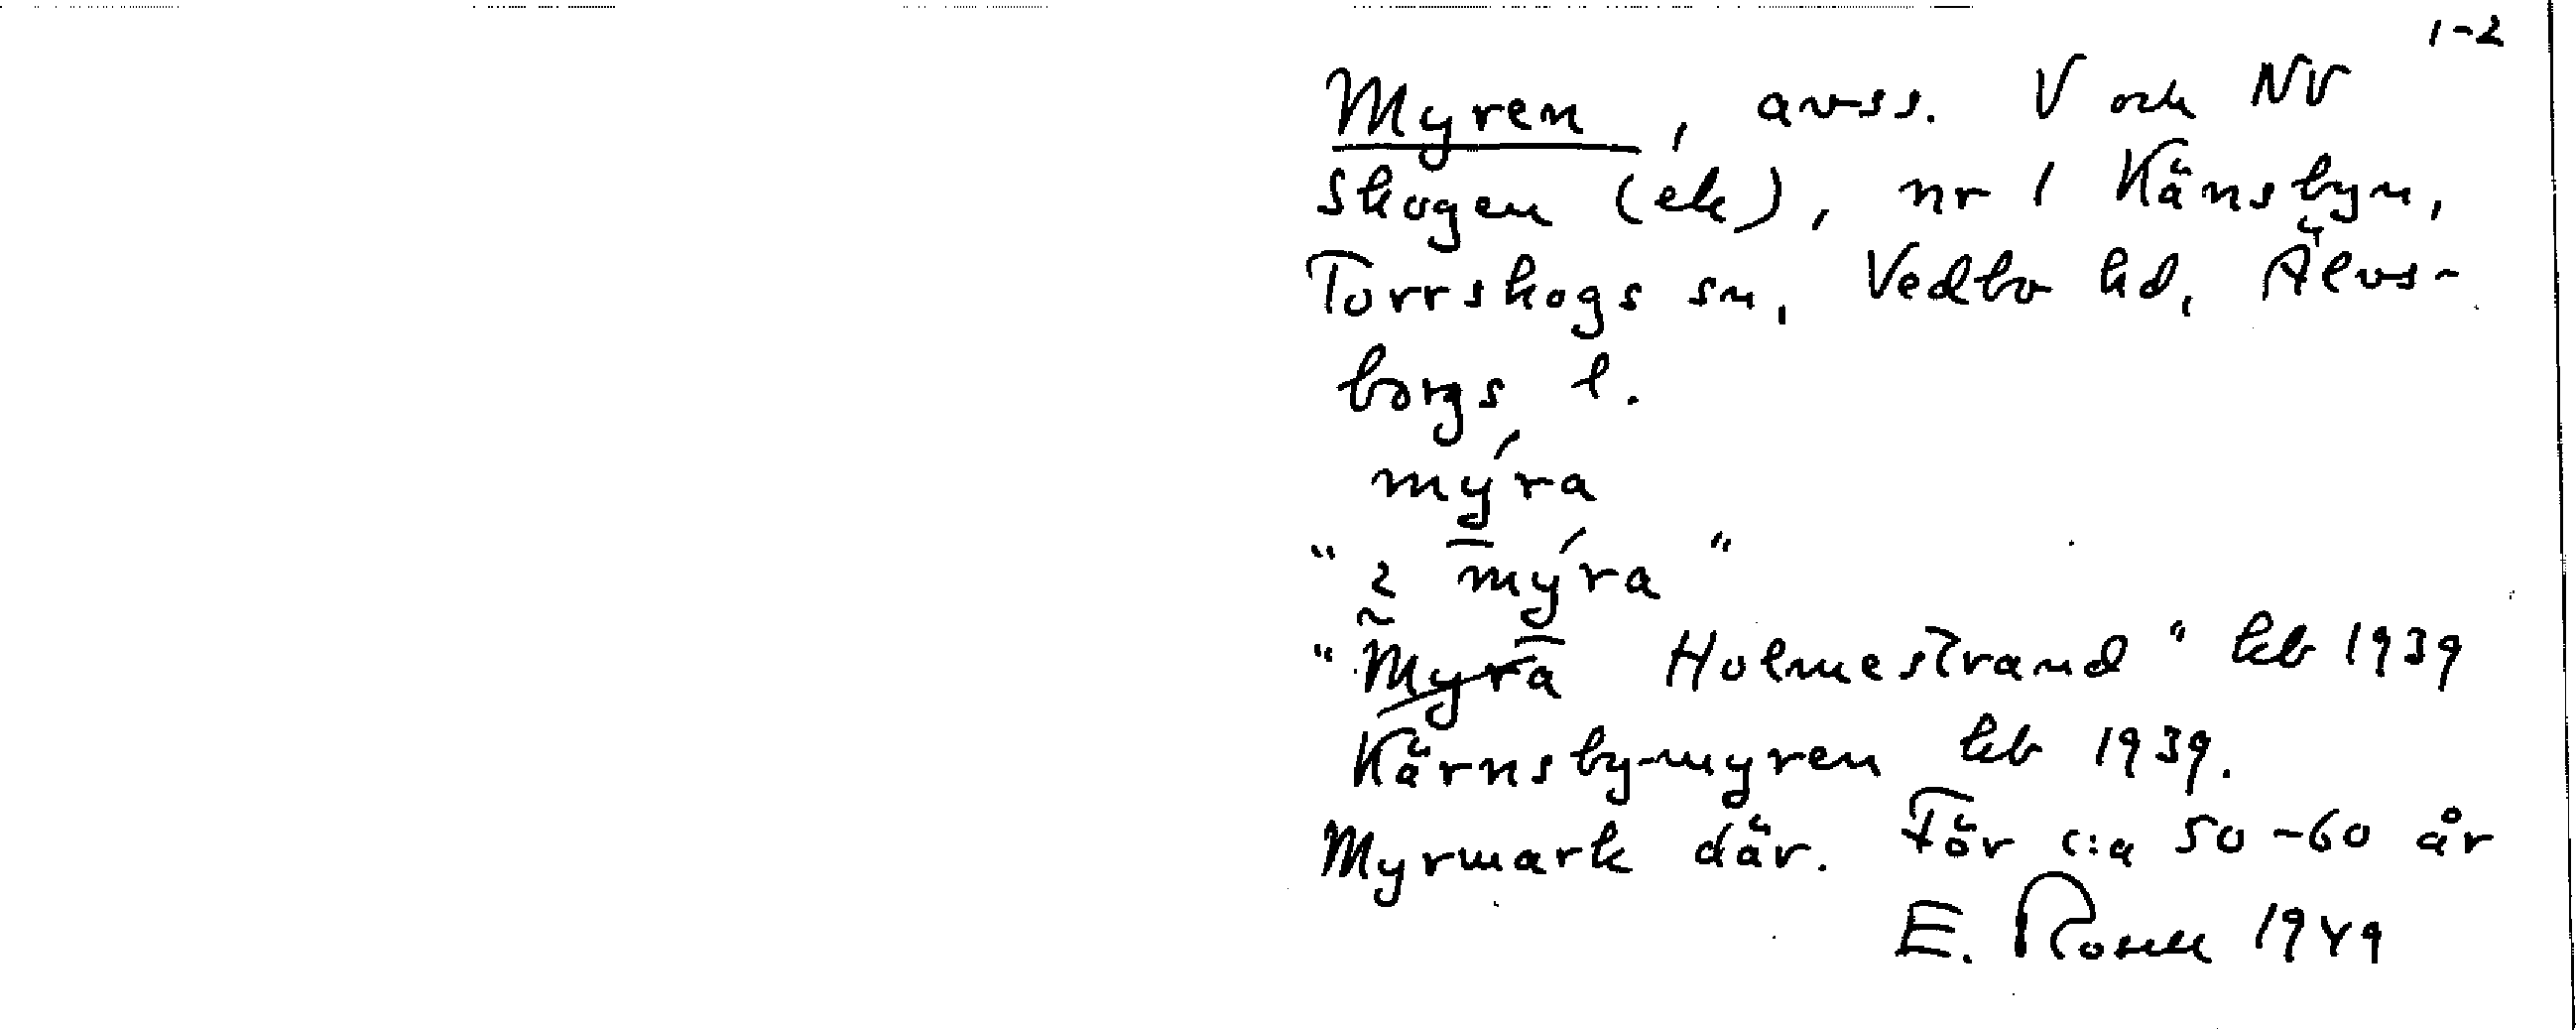 1-2
Myren, avss. V och NV
Skogen (ek), nr 1 Känsbyn,
Torrskogs sn, Vedbo hd, Älvs-
borgs l.
mýra
"2 mýra"
"Myra Holmestrand" kb 1939
Kärnsby-myren kb 1939.
Myrmark där. För c:a 50-60 år
E. Rosell 1949